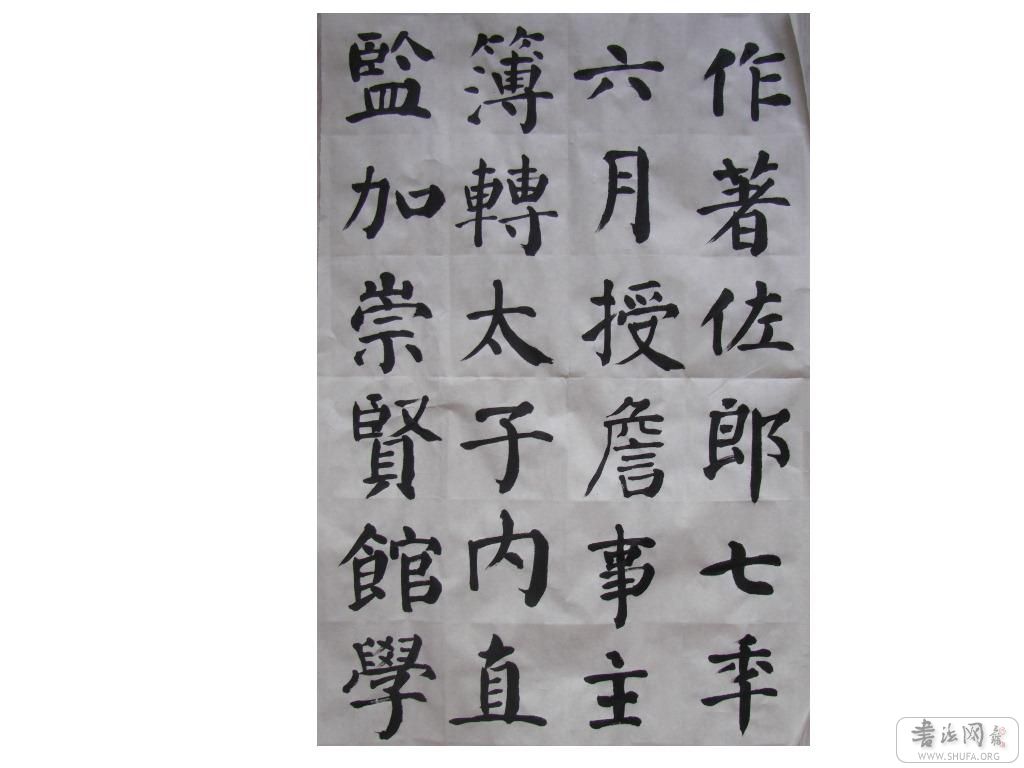 作著佐郎七年
六月授詹事主
簿轉太子内直
監加崇賢館學
书法网
WWW.SHUFA.ORG